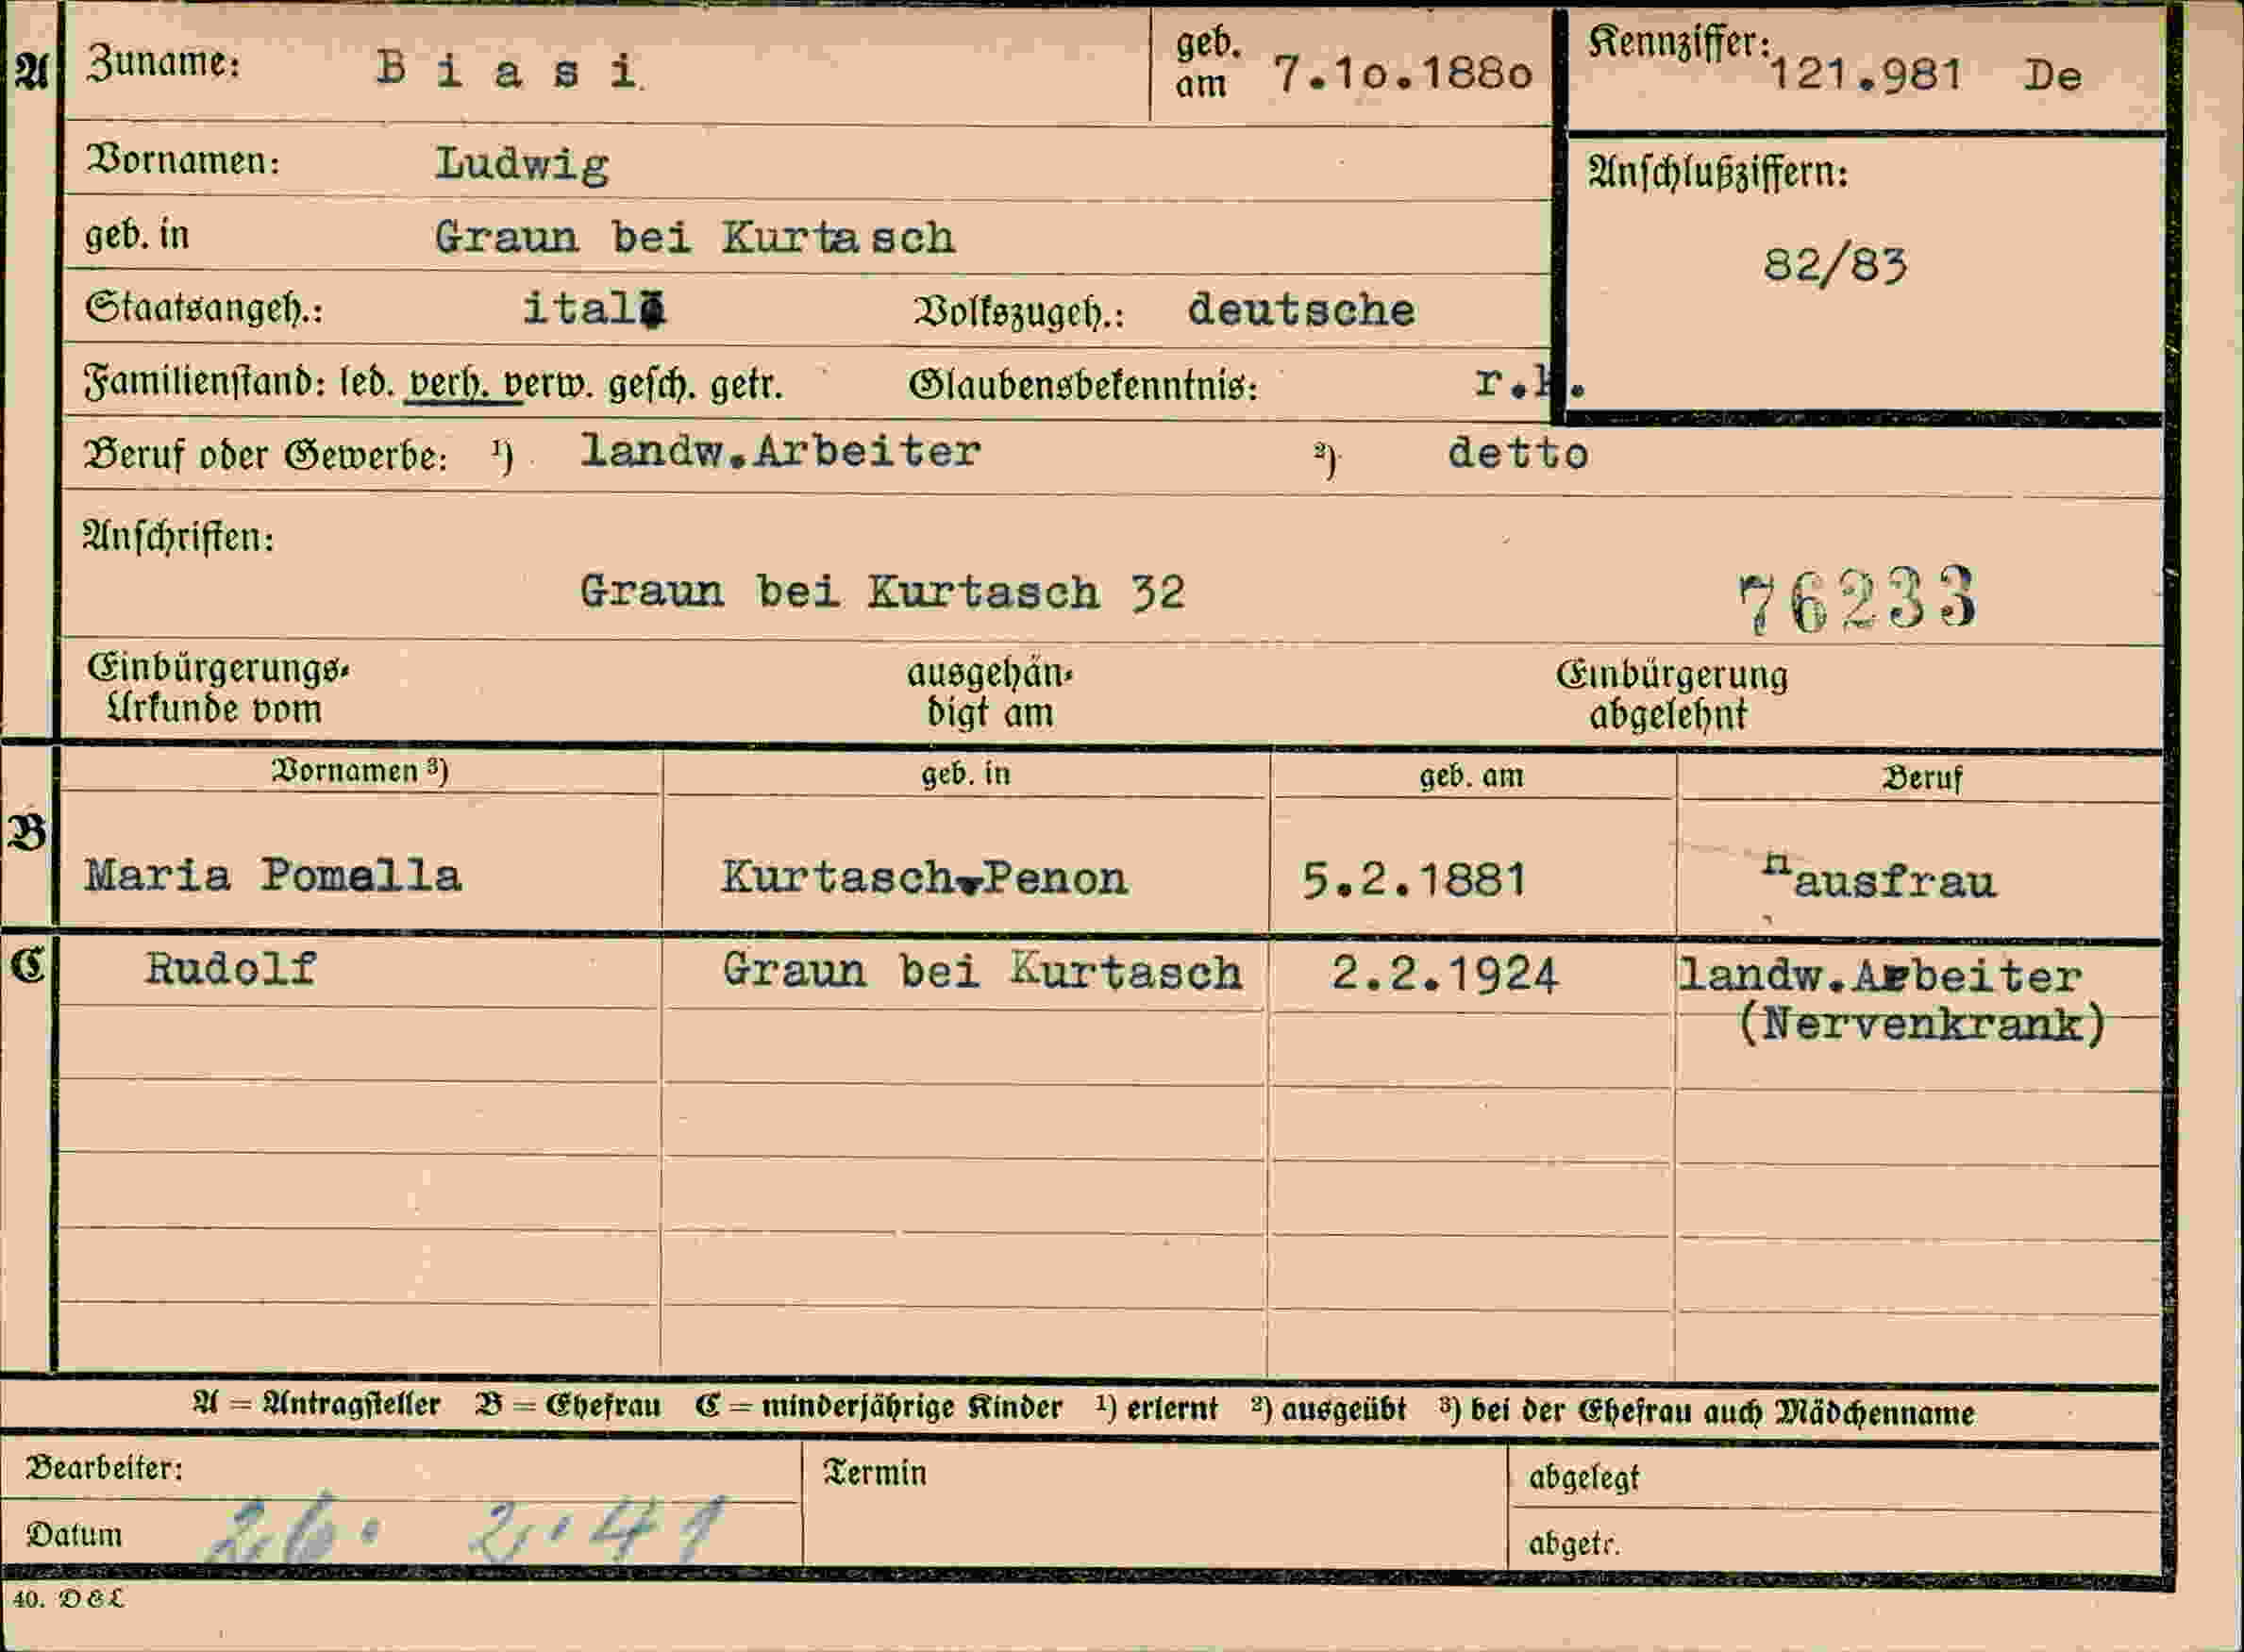 A Zuname: Biasi geb. am 7.10.1880 Kennziffer: 121.981 De
Vornamen: Ludwig Anschlußziffern:
geb. in Graun bei Kurtasch 82/83
Staatsangeh.: ital. Volkszugeh.: deutsche
Familienstand: led. verh. verw. gesch. getr. Glaubensbekenntnis: r.k.
Beruf oder Gewerbe: ¹) landw.Arbeiter ²) detto
Anschriften:
Graun bei Kurtasch 32 76233
Einbürgerungs- ausgehän- Einbürgerung
Urkunde vom digt am abgelehnt
Vornamen ³) geb. in geb. am Beruf
B
Maria Pomella Kurtasch-Penon 5.2.1881 Hausfrau
C Rudolf Graun bei Kurtasch 2.2.1924 landw.Arbeiter
(Nervenkrank)
A = Antragsteller B = Ehefrau C = minderjährige Kinder ¹) erlernt ²) ausgeübt ³) bei der Ehefrau auch Mädchenname
Bearbeiter: Termin abgelegt
Datum 26. 2. 41 abgetr.
40. D&L